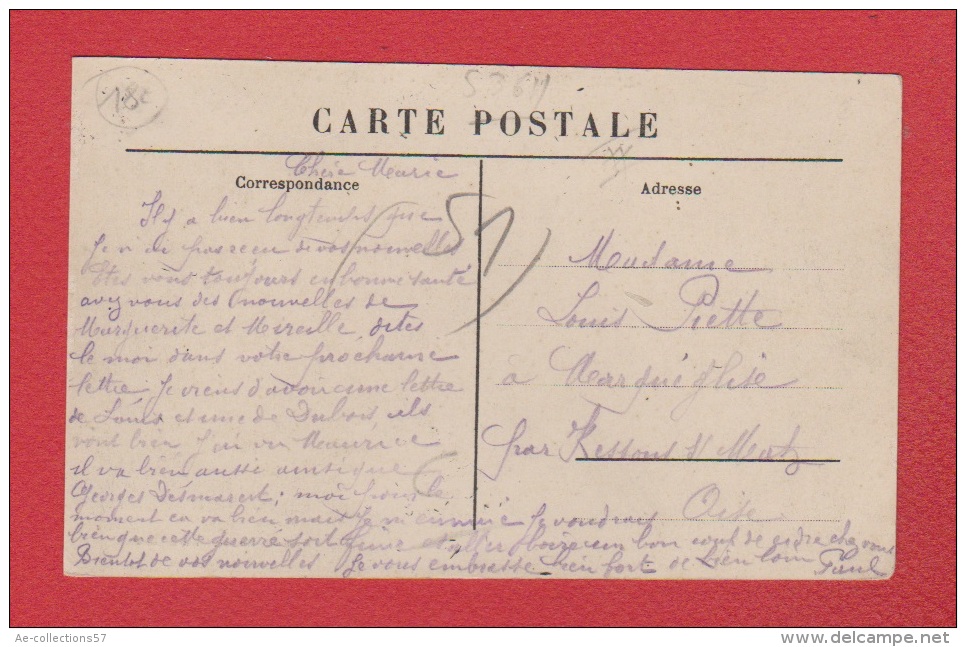 18c
CARTE POSTALE
Correspondance
Adresse
51
Chère Marie
Il y a bien longtemps que
Je n'ai pas recu de vos nouvelles
Etes vous toujours en bonne santé
avez vous des nouvelles de
Marguerite et Mireille, dites
le moi dans votre prochaine
lettre, Je viens d'avoir une lettre
de Louis et une de Dubois, ils
vont bien, J'ai vu Maurice
il va bien aussi ainsi que
Georges Desmarest; moi pour le
moment ca va bien mais Je m'ennuie Je voudrais
bien que cette guerre soit finie et aller boire un bon coup de cidre chez vous
Bientot de vos nouvelles Je vous embrasse bien fort de bien loin
Paul
Madame
Louis Piette
a Marquéglise
par Ressons s/ Matz
Oise
Ae-collections57
www.delcampe.net